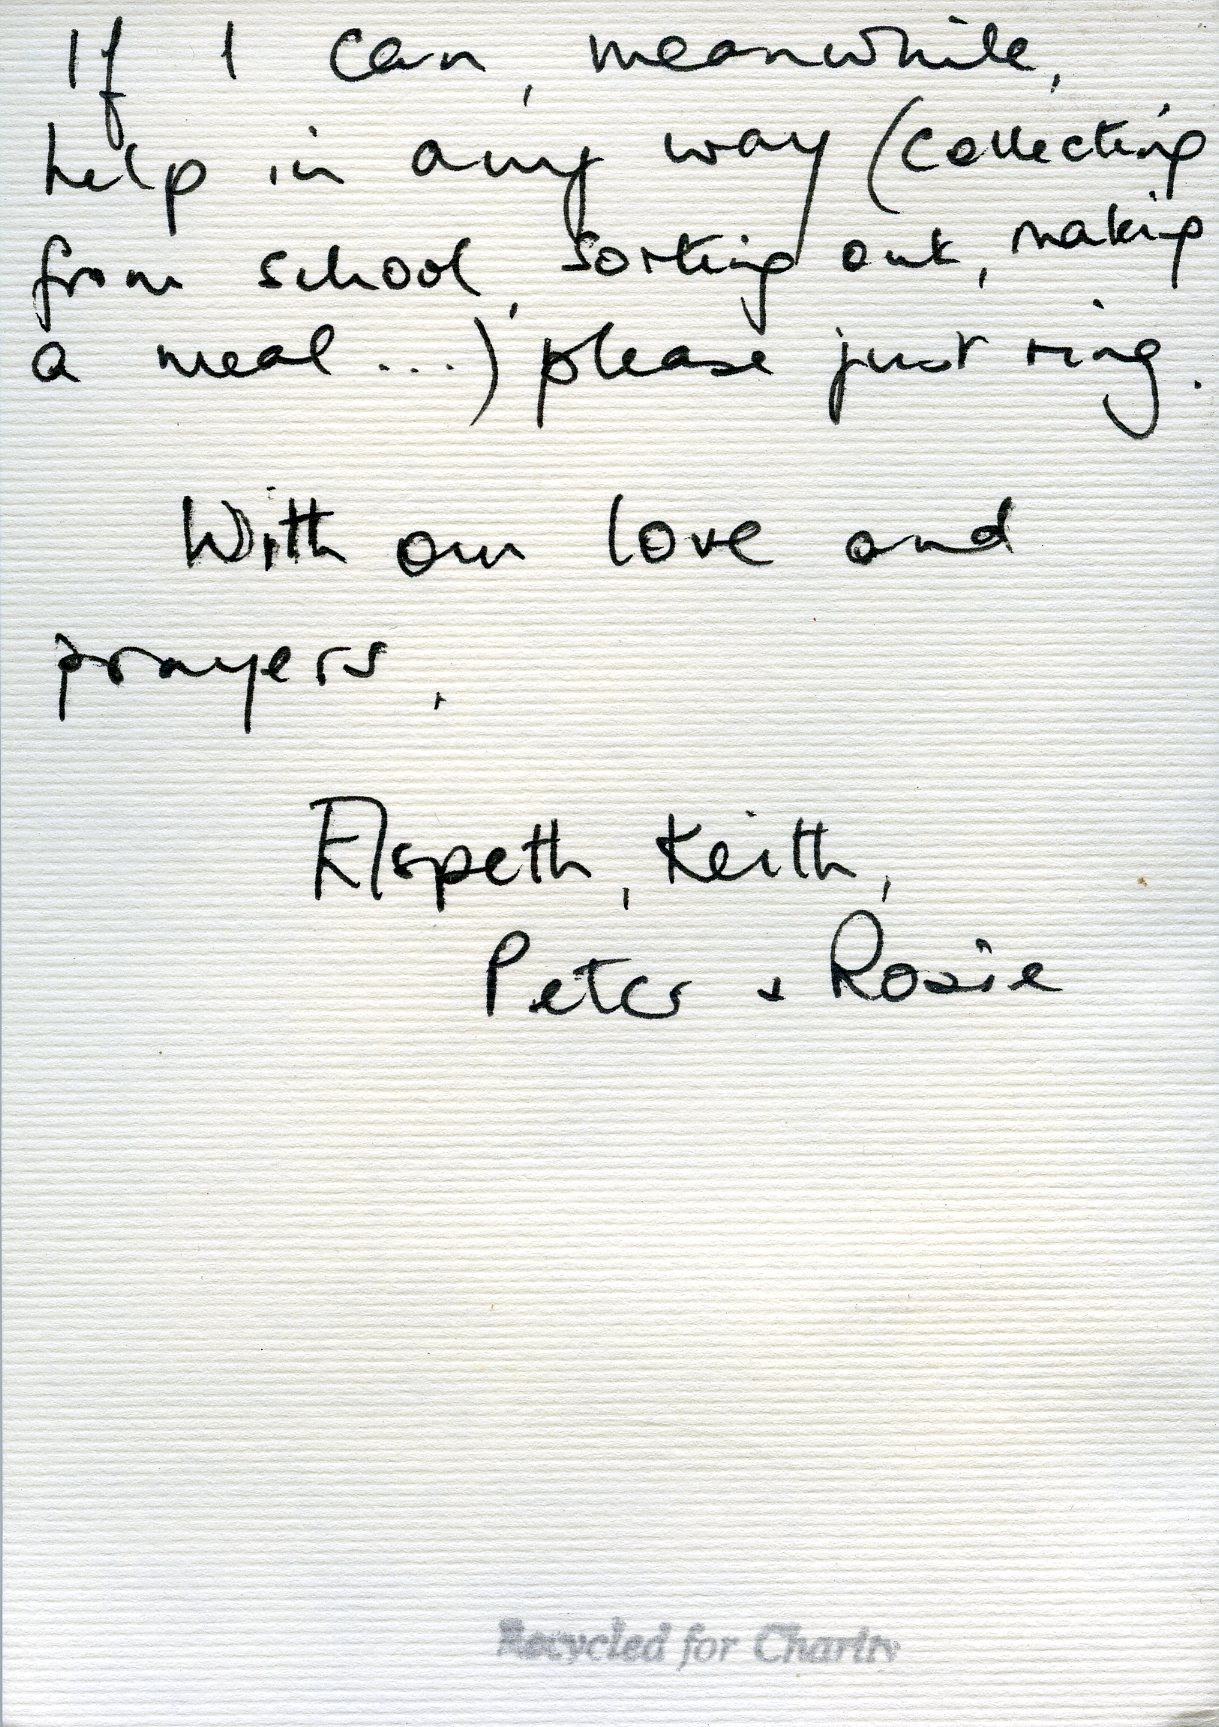 If I can, meanwhile,
help in any way (collecting
from school, sorting out, making
a meal ...) please just ring.
With our love and
prayers,
Elspeth, Keith,
Peter + Rosie
Recycled for Charity